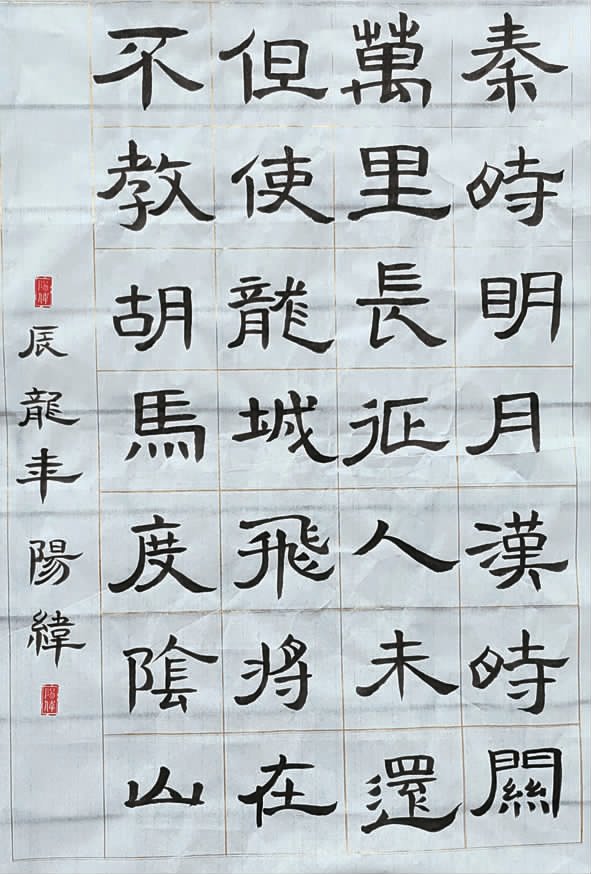 秦時明月漢時關
萬里長征人未還
但使龍城飛將在
不教胡馬度陰山
辰龍年陽緯